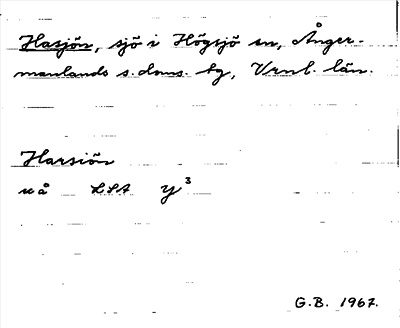 Hasjön, sjö i Högsjö sn, Ånger-
manlands s. doms. tg, Vrnl. län.
Harsiön
uå LSA Y³
G.B. 1967.